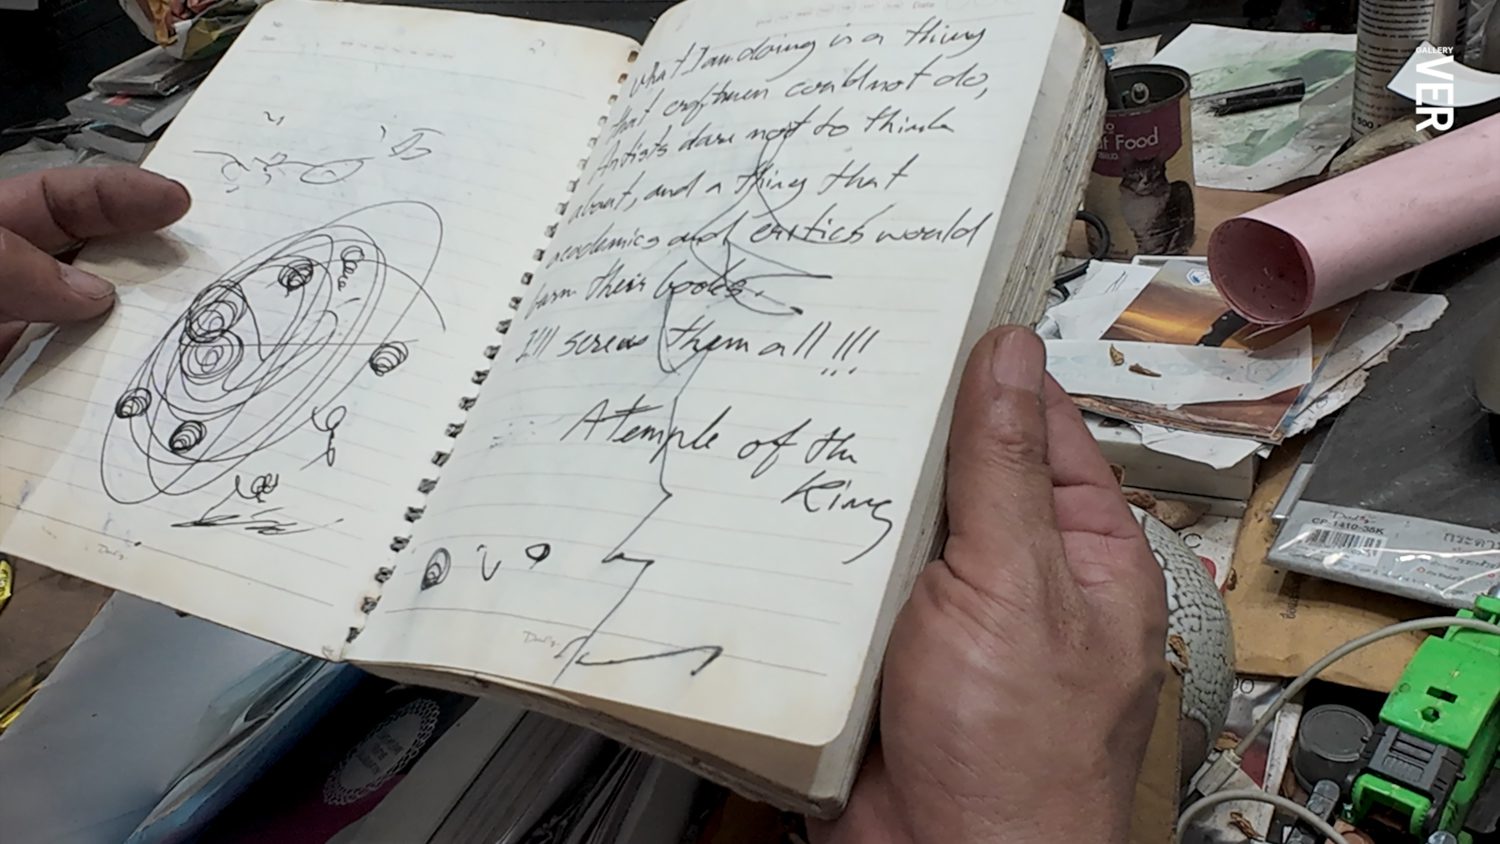 what I am doing is a thing
that craftmen could not do,
Artists dare not to think
about, and a thing that
academics and critics would
burn their books.
I'll screw them all !!!
A Temple of the
King
GALLERY
VER
Food
CP-1410-35K